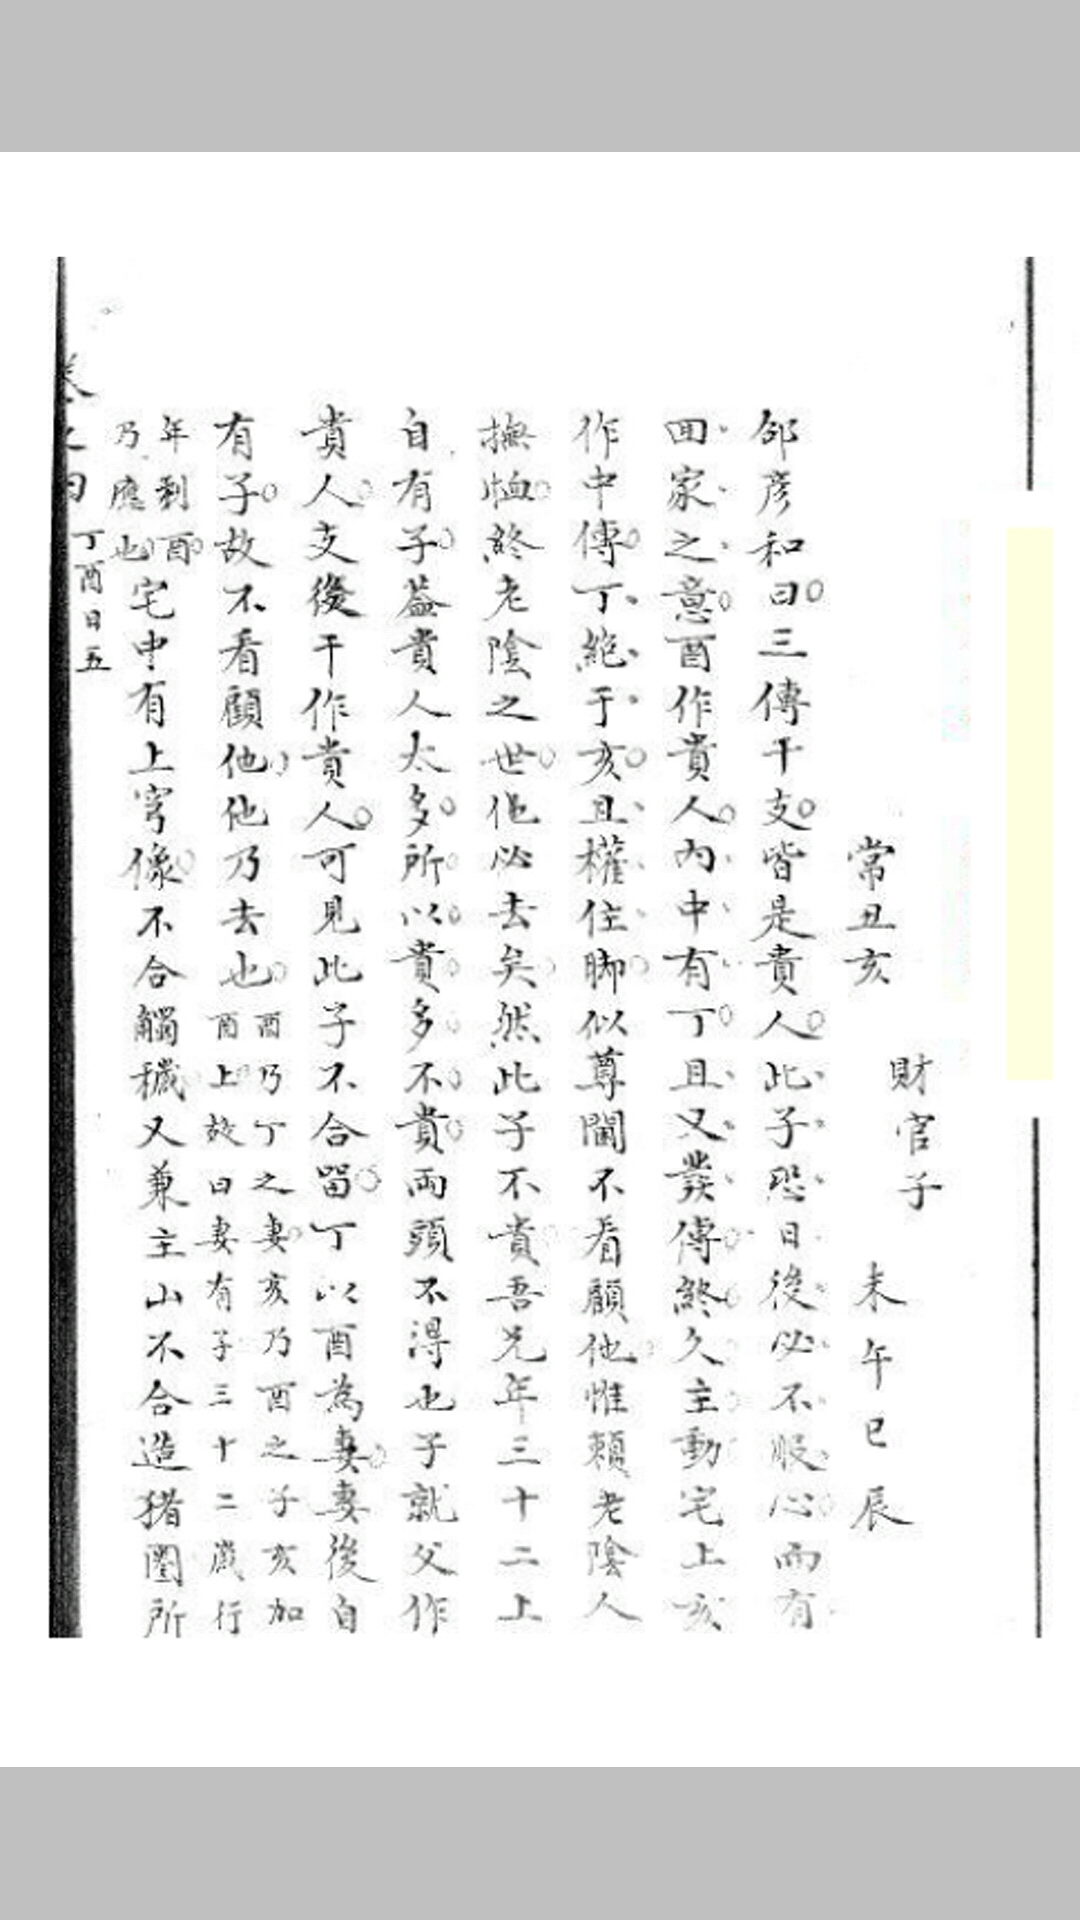 財官子
常丑亥
未午巳辰
邵彦和曰三傳干支皆是貴人此子恐日後必不服心而有
回家之意酉作貴人内中有丁且又發傳終久主動宅上亥
作中傳丁絶于亥且權住脚似尊閫不看顧他惟賴老陰人
撫恤終老陰之世他必去矣然此子不貴吾兄年三十二上
自有子葢貴人太多所以貴多不貴兩頭不淂也子就父作
貴人支後干作貴人可見此子不合畱丁以酉為妻妻後自
有子故不看顧他他乃去也
酉乃丁之妻亥乃酉之子亥加
酉上故曰妻有子三十二歲行
年到酉
乃應也
宅中有上穹像不合觸穢又兼主山不合造猪圏所
丁酉日五